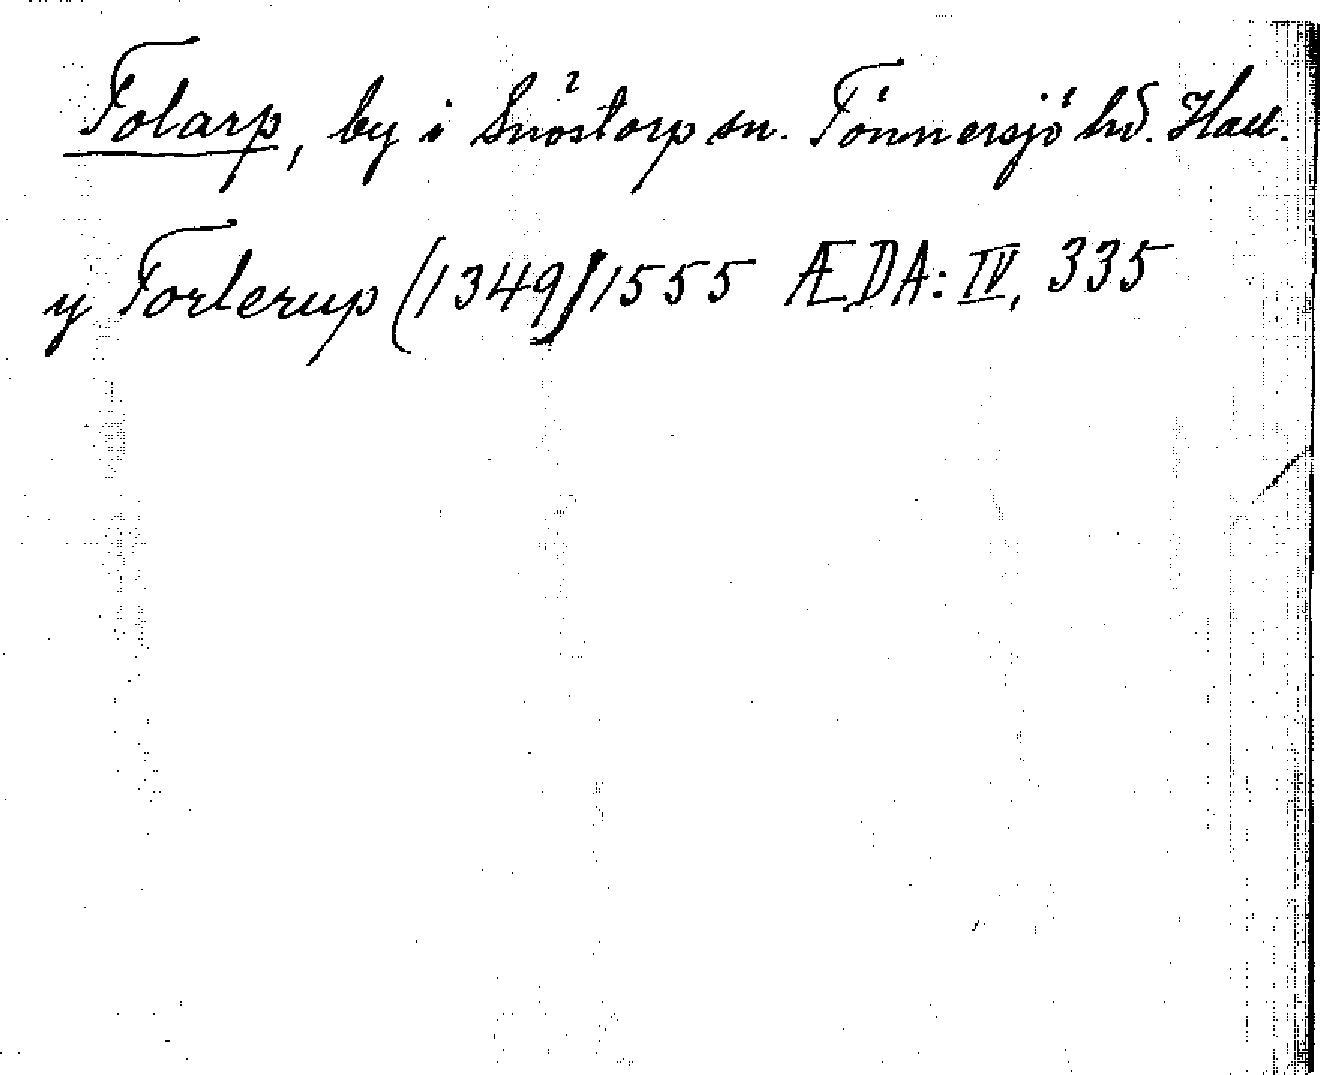 Tolarp, by i Snöstorp sn. Tönnersjö hd. Hall.
y Torlerup (1349)/1555 ÆDA: IV, 335